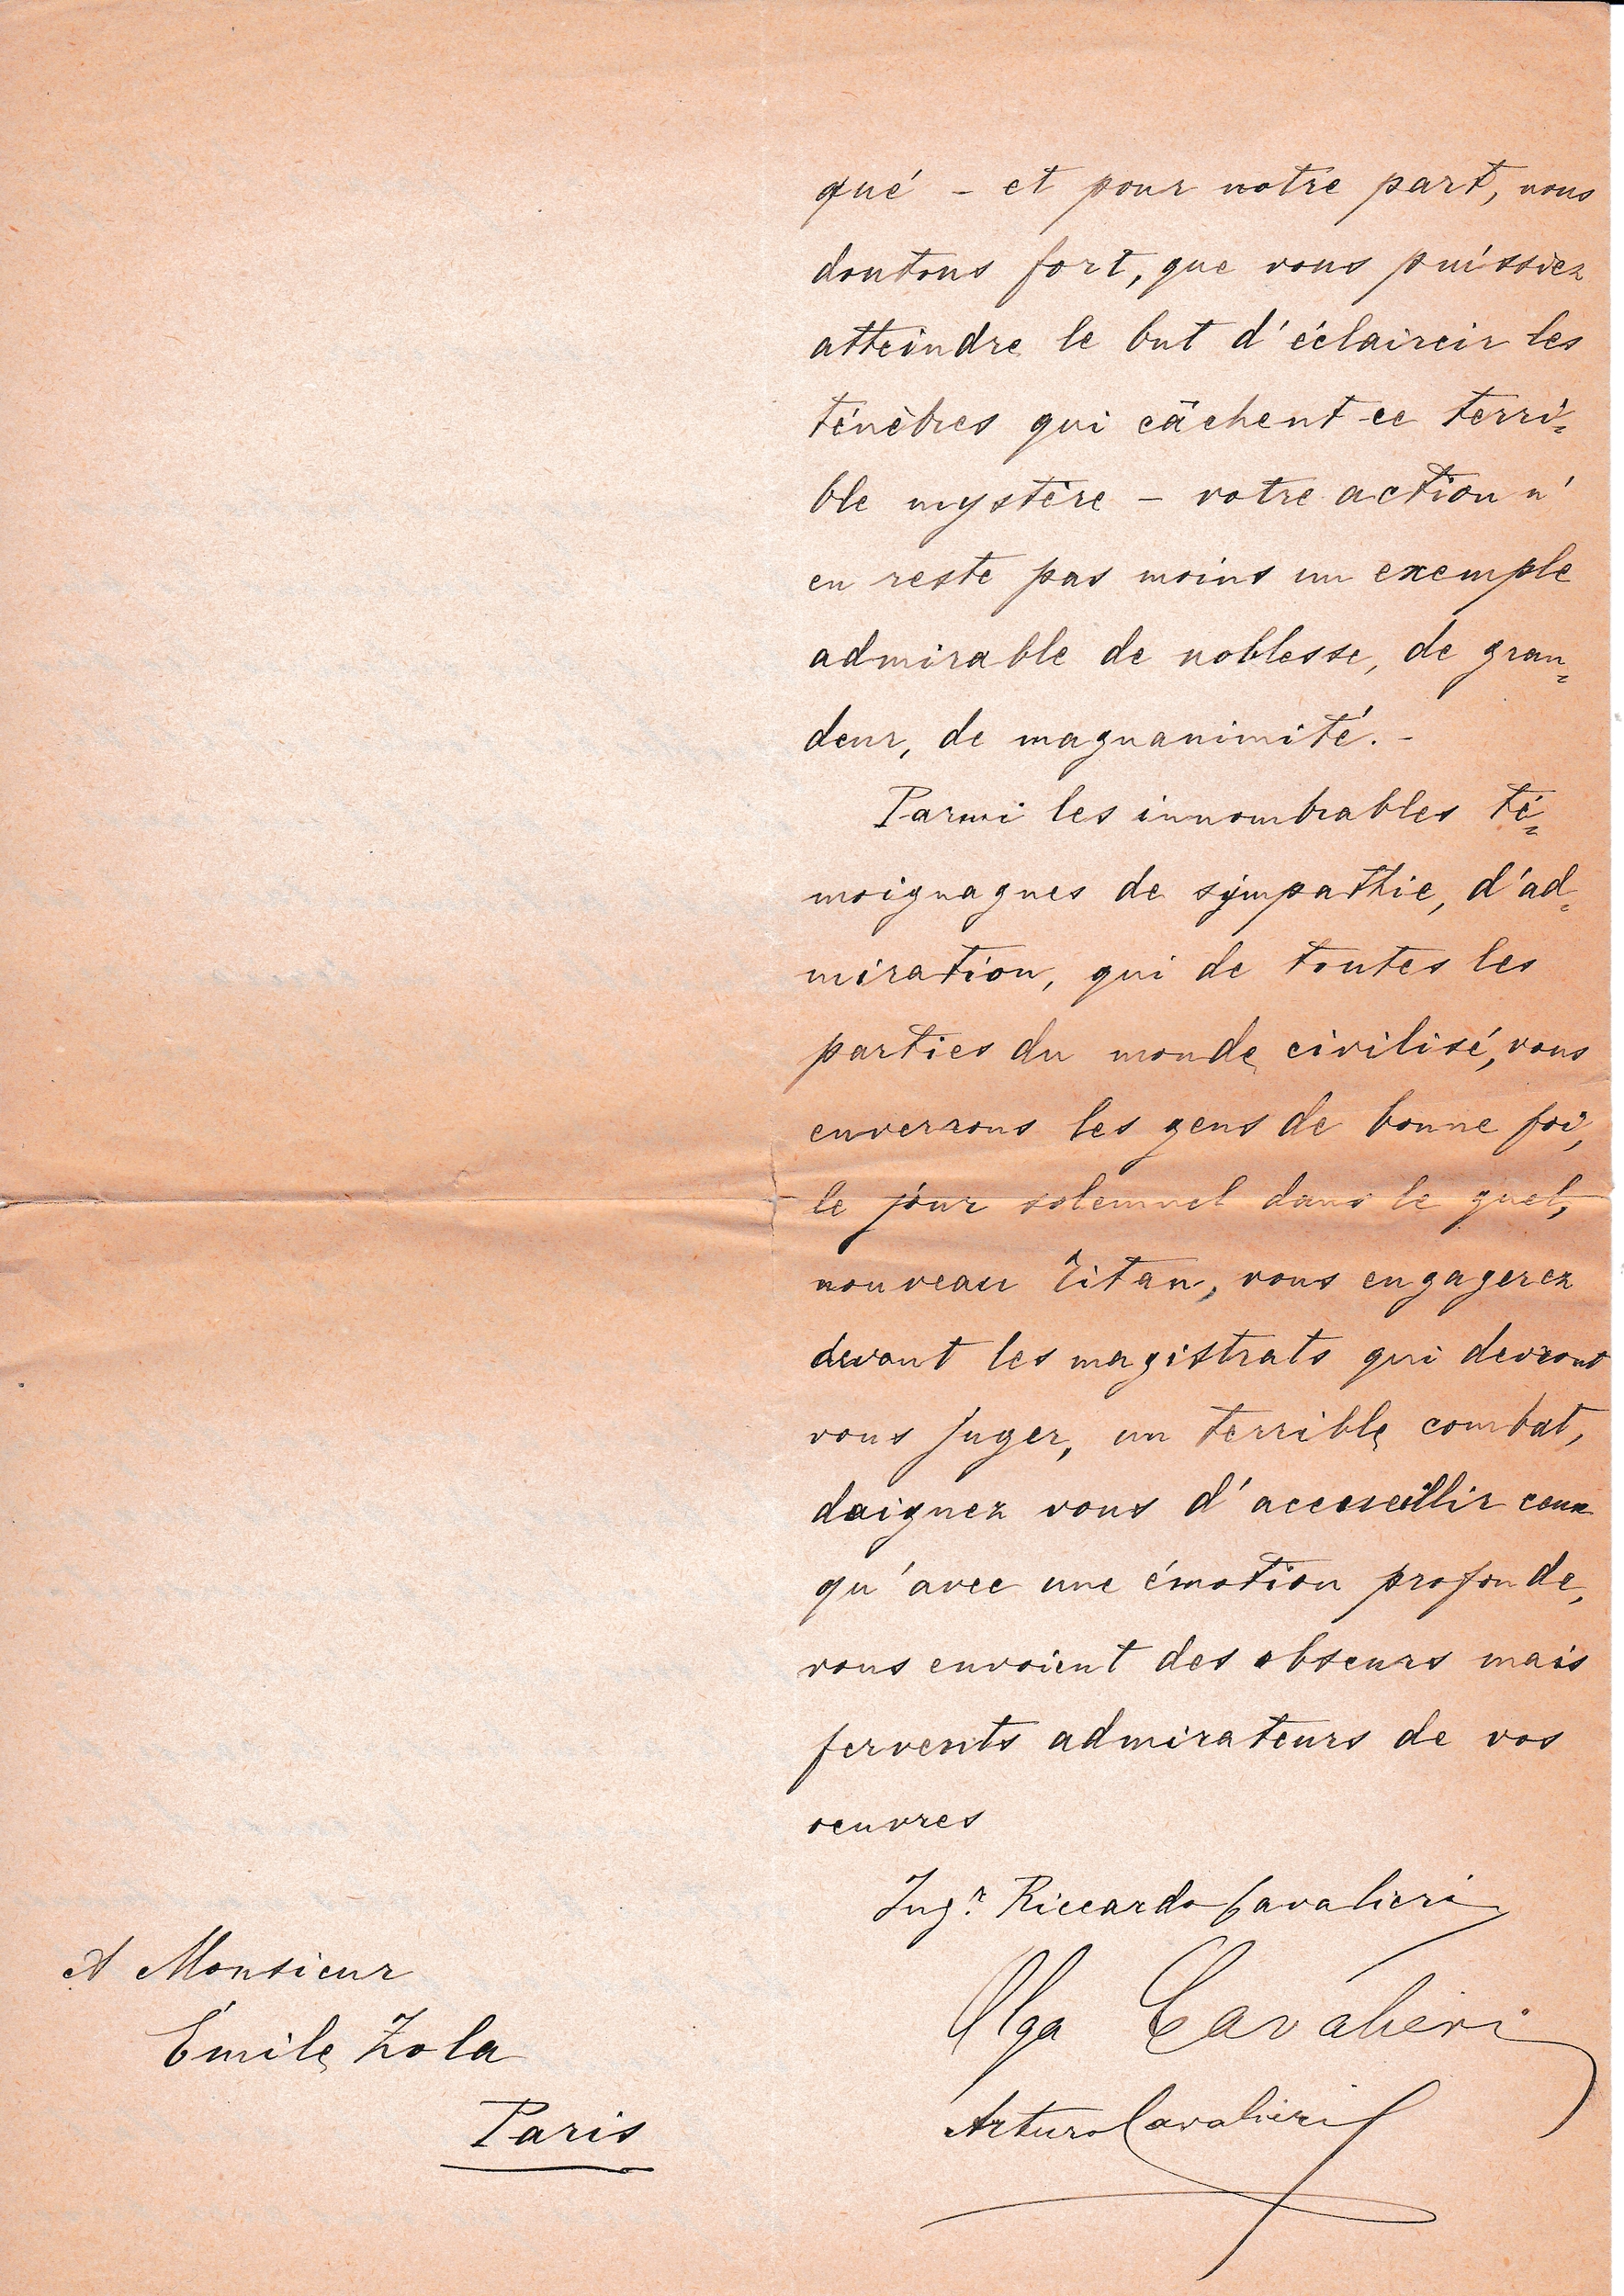 qué – et pour notre part, nous
doutons fort, que vous puissiez
atteindre le but d'éclaircir les
ténèbres qui câchent ce terri=
ble mystère – votre action n'
en reste pas moins un exemple
admirable de noblesse, de gran=
deur, de magnanimité. –
Parmi les innombrables té=
moignagnes de sympathie, d'ad=
miration, qui de toutes les
parties du monde civilisé, vous
enverrons les gens de bonne foi,
le jour solemnel dans le quel,
nouveau Titan, vous engagerez
devant les magistrats qui devront
vous juger, un terrible combat,
daignez vous d'accueillir ceux
qu'avec une émotion profonde,
vous envoient des obscurs mais
fervents admirateurs de vos
oeuvres
Ing.r Riccardo Cavalieri
Olga Cavalieri
Arturo Cavalieri
A Monsieur
Émile Zola
Paris